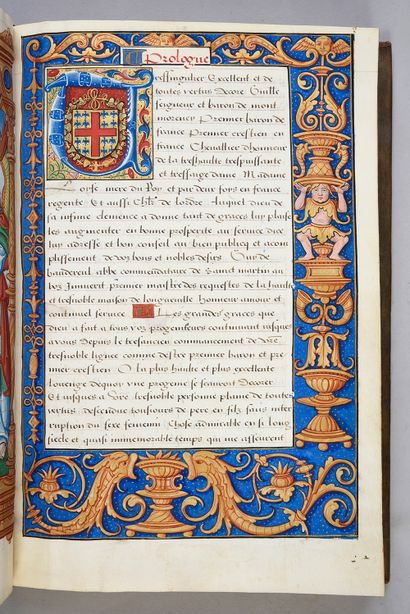 Prologue
Tressingulier Excellent et de
toutes vertus Decore Guille
seigneur et baron de mont
morency Premier baron de
france Premier crestien en
france Chevallier dhonneur
de la treshaulte trespuissante
et tressage dame Madame
Loise mere du Roy et par deux foys en france
regente Et aussi de lordre duquel dieu de
sa infinie clemence a donne tant de graces luy plaise
les augmenter en bonne prosperite au service dire
luy adresse et bon conseil au bien publicq et acom
plissement de voz bons et nobles desirs
abbe commendataire de sainct martin au
boz premier maistre des requestes de la haulte
et tresnoble maison de longueville Honneur amour et
continuel service Les grandes graces que
dieu a fait a tous voz progeniteurs continuant jusques
a vous depuis le tresancien commancement de
tresnoble lignee comme destre premier baron et pre
mier crestien O la plus haulte et plus excellente
louenge dequoy une progenie se scauroit Decorer
Et jusques a vostre tresnoble personne plaine de toutes
vertus descendue tousjours de pere en filz sans inter
ruption du sexe femenin Chose admirable en si long
siecle et quasi immemorable temps qui me asseurent